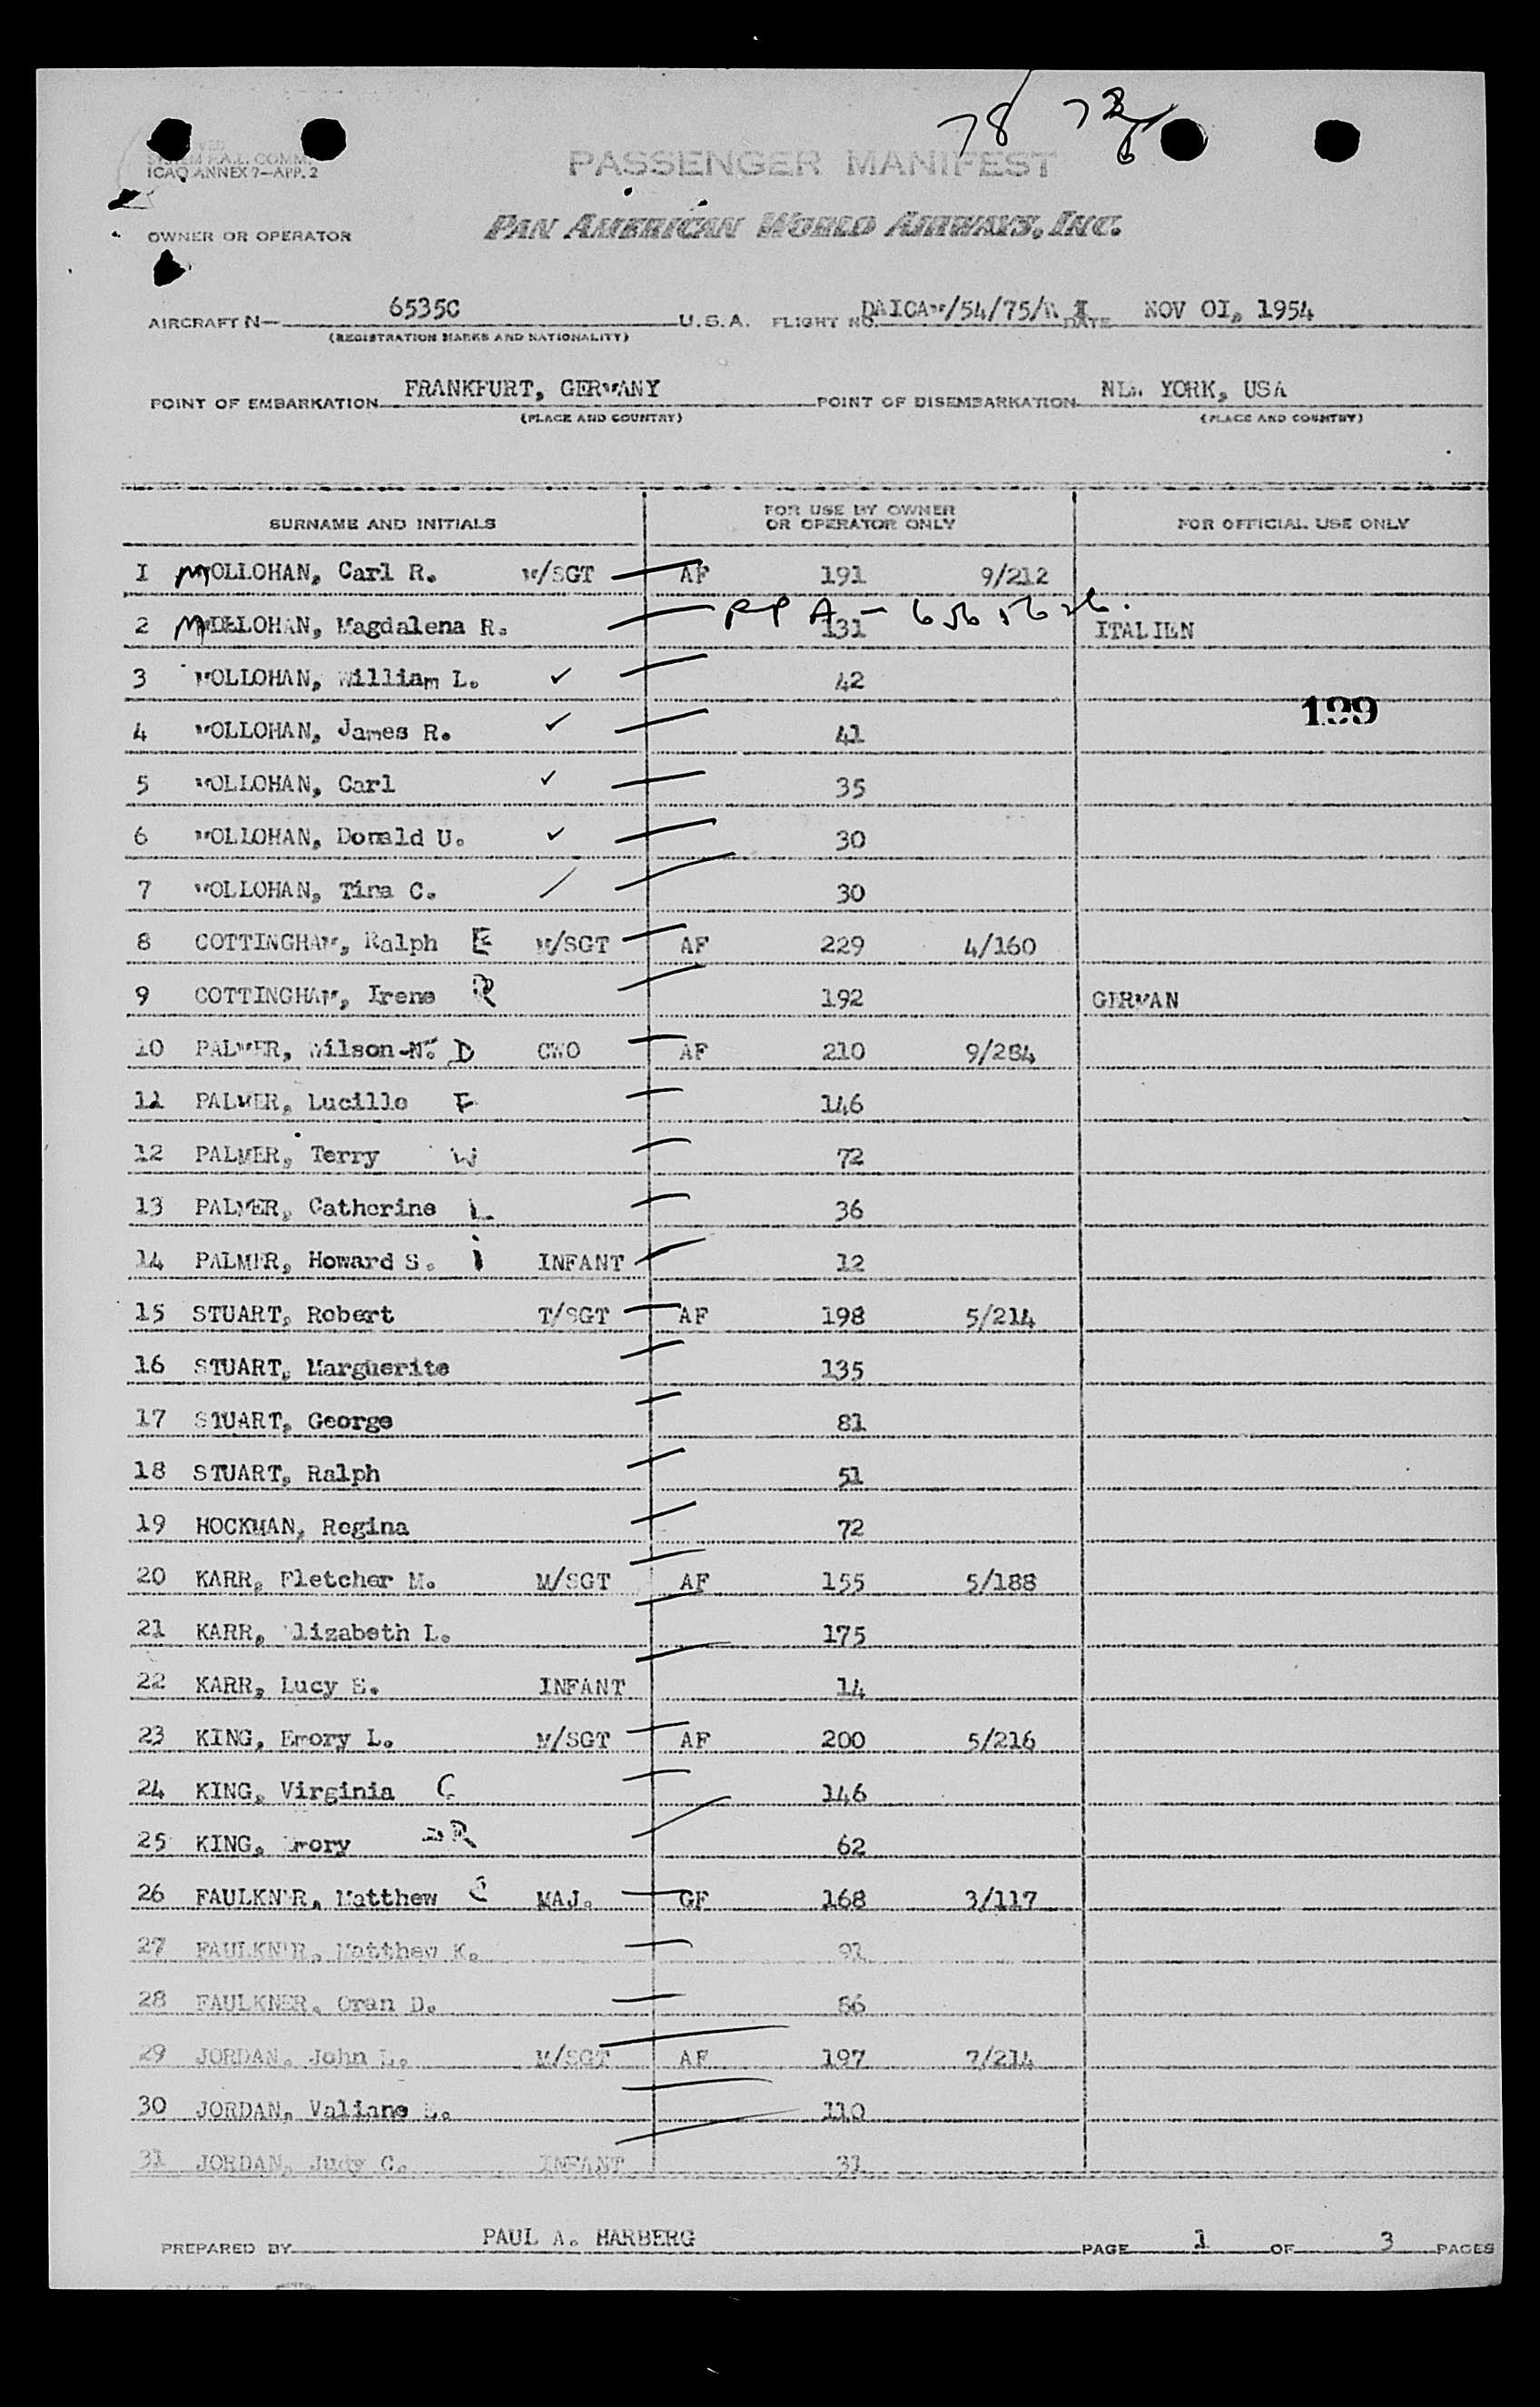 78 72
ICAO ANNEX 7—APP. 2
PASSENGER MANIFEST
OWNER OR OPERATOR PAN AMERICAN WORLD AIRWAYS, INC.
AIRCRAFT N— 6535C U.S.A. FLIGHT NO. DATE NOV 01, 1954
(REGISTRATION MARKS AND NATIONALITY)
POINT OF EMBARKATION FRANKFURT, GERMANY POINT OF DISEMBARKATION YORK, USA
(PLACE AND COUNTRY) (PLACE AND COUNTRY)
SURNAME AND INITIALS FOR USE BY OWNER OR OPERATOR ONLY FOR OFFICIAL USE ONLY
1 MOLLOHAN, Carl R. M/SGT AF 191 9/212
2 MOLLOHAN, Magdalena R. 131 ITALIEN
3 MOLLOHAN, William L. ✓ 42
199
4 MOLLOHAN, James R. ✓ 41
5 MOLLOHAN, Carl ✓ 35
6 MOLLOHAN, Donald U. ✓ 30
7 MOLLOHAN, Tina C. 30
8 COTTINGHAM, Ralph E M/SGT AF 229 4/160
9 COTTINGHAM, Irene R 192 GERMAN
10 PALMER, Wilson N. D CWO AF 210 9/284
11 PALMER, Lucille F 146
12 PALMER, Terry W 72
13 PALMER, Catherine L 36
14 PALMER, Howard S. INFANT 12
15 STUART, Robert T/SGT AF 198 5/214
16 STUART, Marguerite 135
17 STUART, George 81
18 STUART, Ralph 51
19 HOCKMAN, Regina 72
20 KARR, Fletcher M. M/SGT AF 155 5/188
21 KARR, Elizabeth L. 175
22 KARR, Lucy E. INFANT 14
23 KING, Emory L. M/SGT AF 200 5/216
24 KING, Virginia C 146
25 KING, Emory JR 62
26 FAULKNER, Matthew C MAJ. GF 168 3/117
27 FAULKNER, Matthew K. 91
28 FAULKNER, Oran D. 86
29 JORDAN, John L. M/SGT AF 197 7/214
30 JORDAN, Valiane 110
31 JORDAN, Judy C. INFANT 31
PREPARED BY PAUL A. HARBERG PAGE 1 OF 3 PAGES